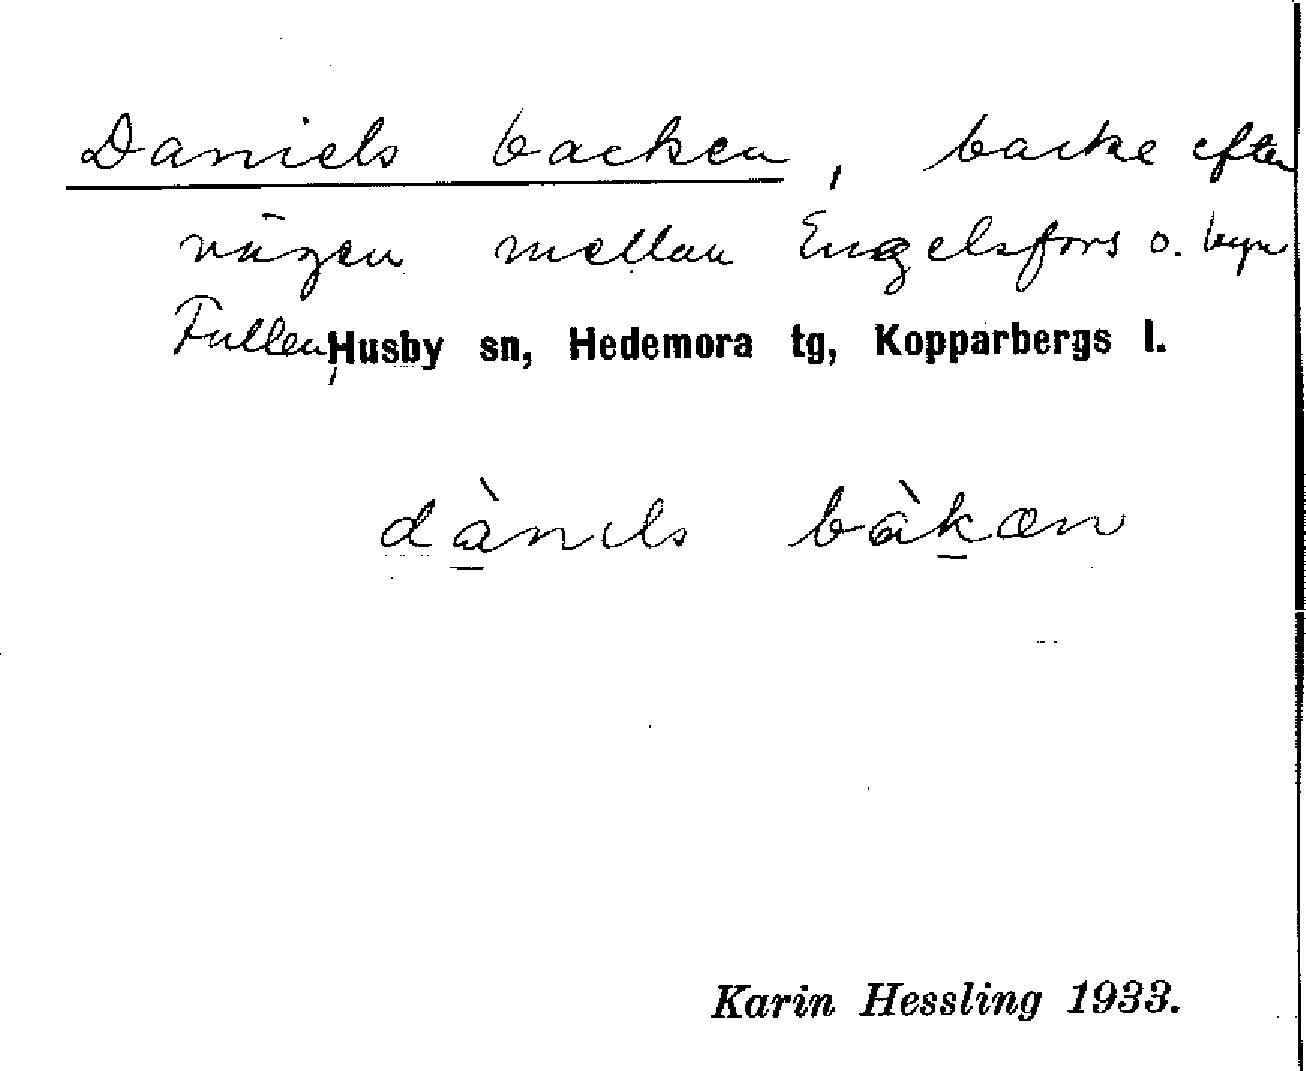 Daniels backen, backe efter
vägen mellan Engelsfors o. byn
Fullen, Husby sn, Hedemora tg, Kopparbergs l.
dànɩls bàkæn
Karin Hessling 1933.